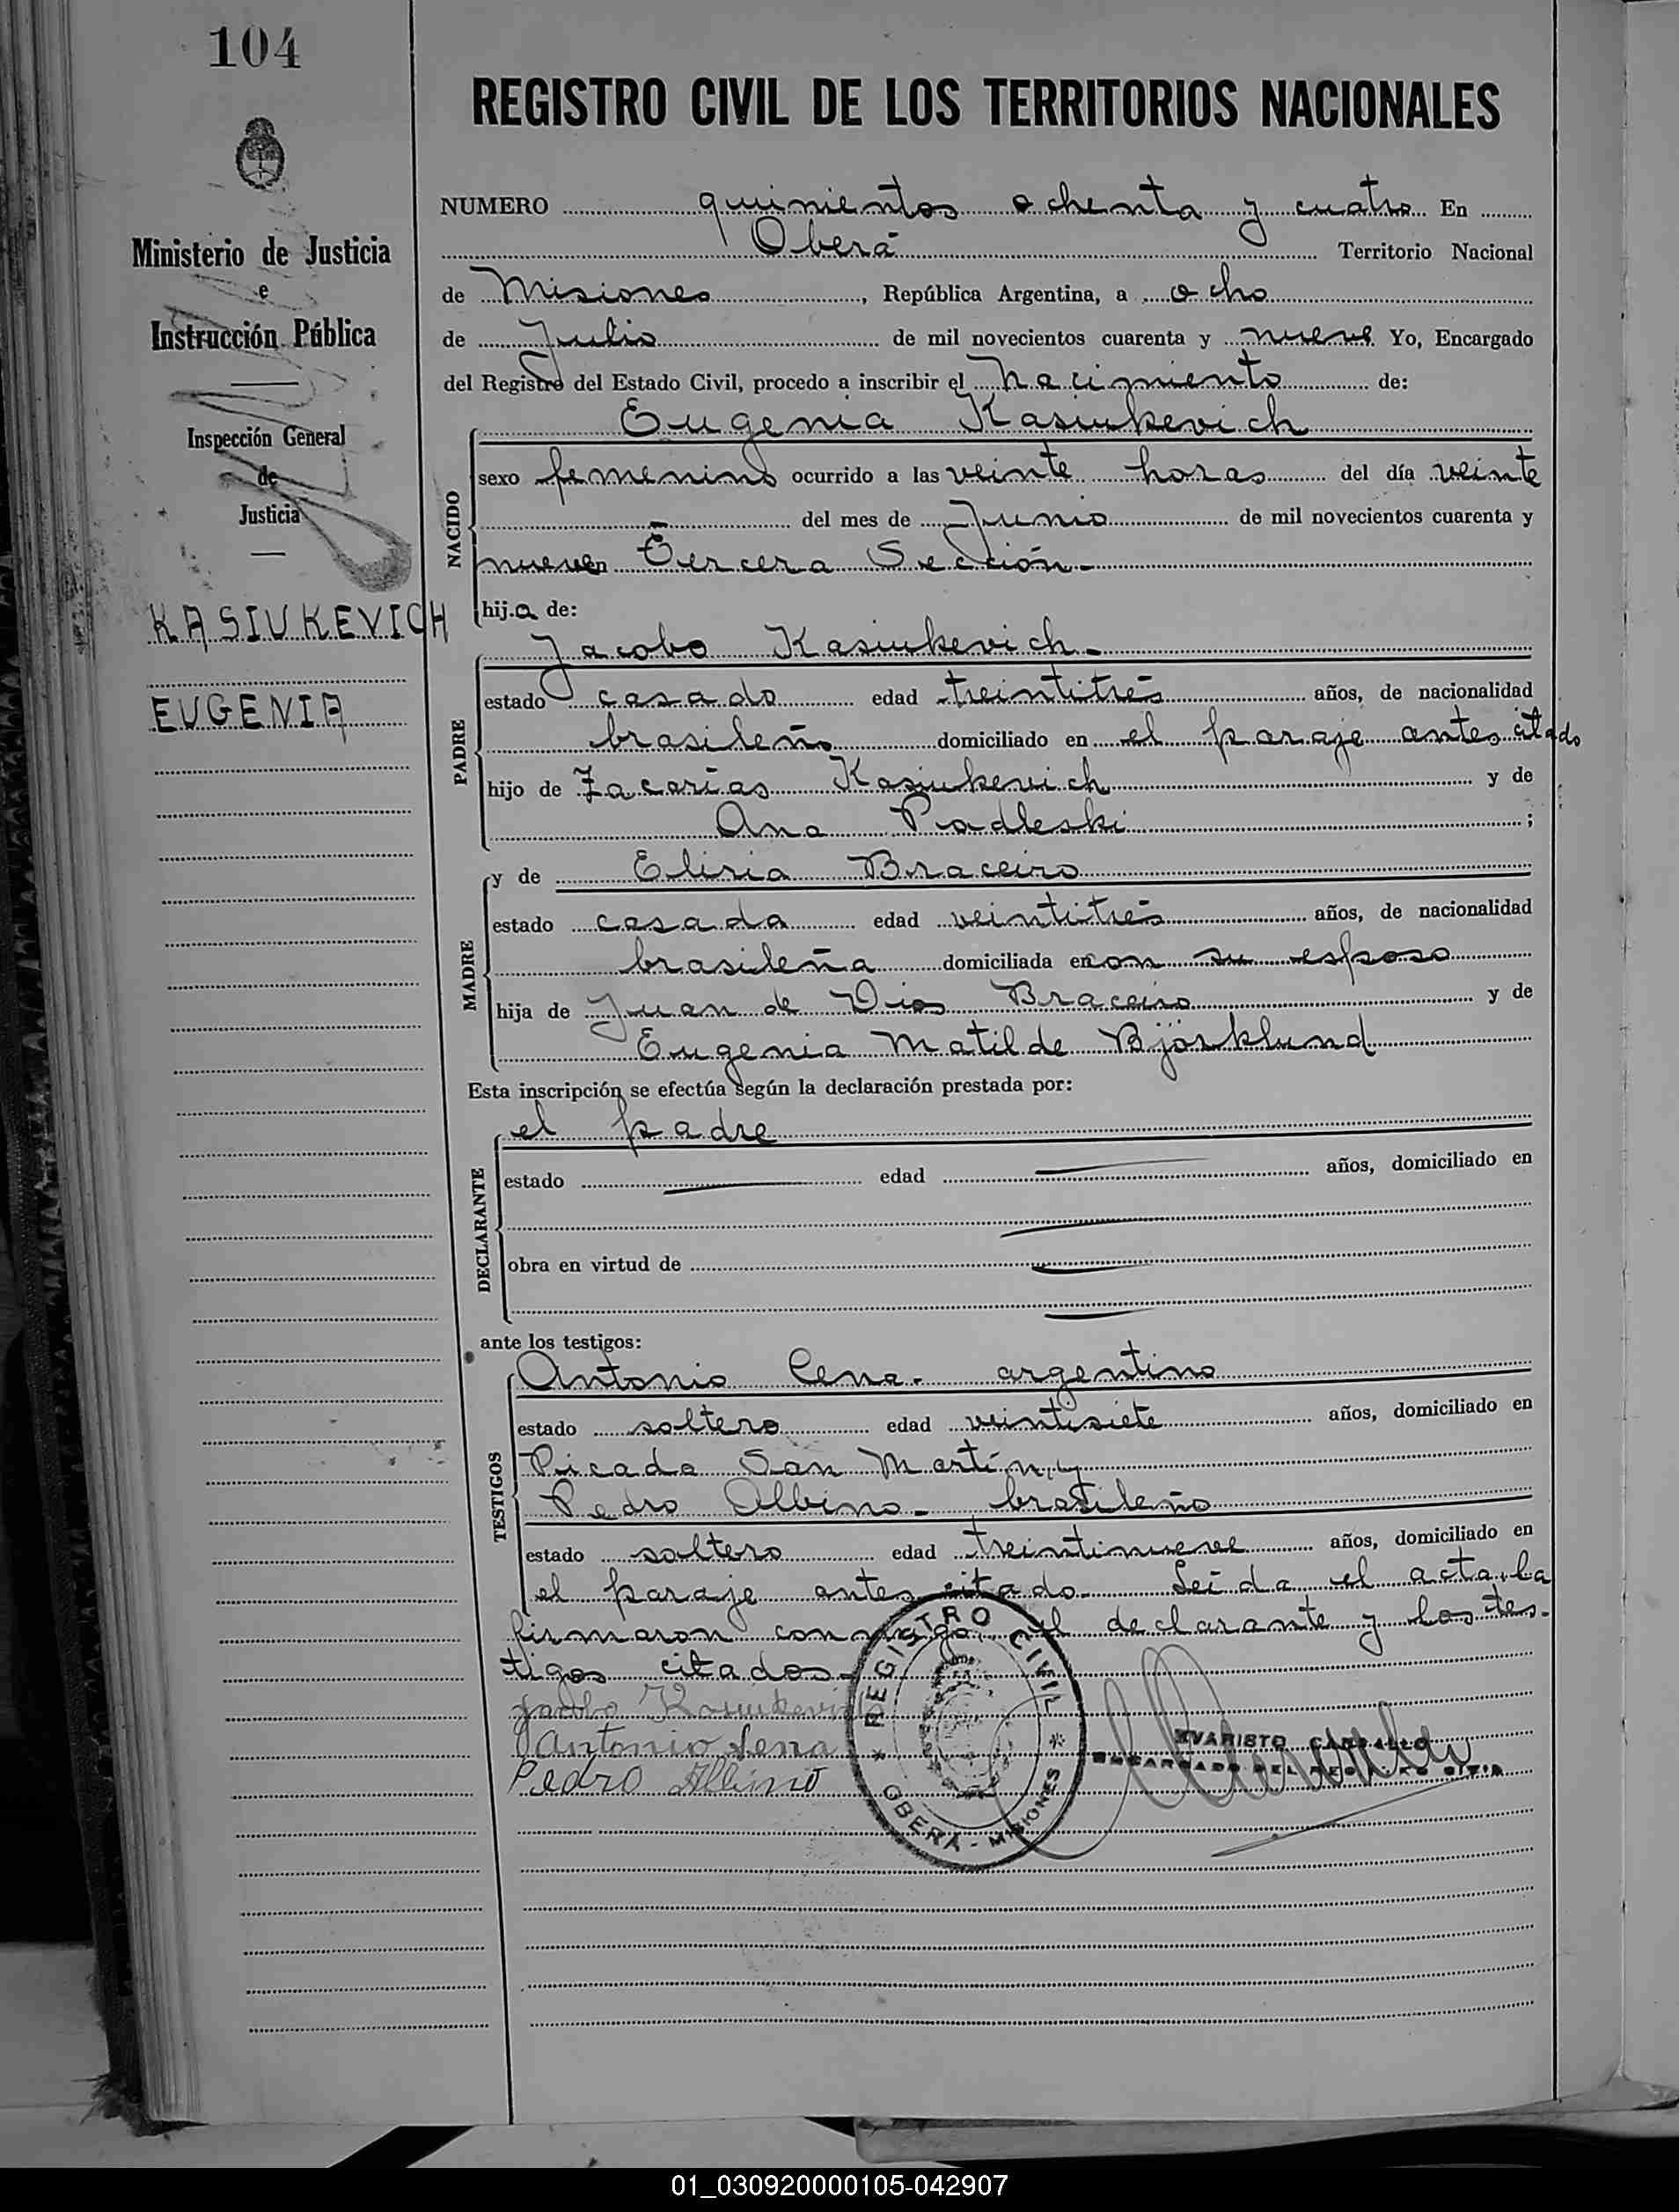 104
Ministerio de Justicia
e
Instrucción Pública
Inspección General
de
Justicia
KASIUKEVICH
EUGENIA
REGISTRO CIVIL DE LOS TERRITORIOS NACIONALES
NUMERO quinientos ochenta y cuatro En
Oberá Territorio Nacional
de Misiones, República Argentina, a ocho
de Julio de mil novecientos cuarenta y nueve Yo, Encargado
del Registro del Estado Civil, procedo a inscribir el nacimiento de:
Eugenia Kasiukevich
NACIDO
sexo femenino ocurrido a las veinte horas del día veinte
del mes de Junio de mil novecientos cuarenta y
nueve en Tercera Sección.-
hija de:
Jacobo Kasiukevich.-
PADRE
estado casado edad treintitrés años, de nacionalidad
brasileño domiciliado en el paraje antes citado
hijo de Zacarías Kasiukevich y de
Ana Podleski;
MADRE
y de Eliria Braceiro
estado casada edad veintitrés años, de nacionalidad
brasileña domiciliada en con su esposo
hija de Juan de Dios Braceiro y de
Eugenia Matilde Björklund
Esta inscripción se efectúa según la declaración prestada por:
DECLARANTE
el padre
estado edad años, domiciliado en
obra en virtud de
ante los testigos:
TESTIGOS
Antonio Lena.- argentino
estado soltero edad veintisiete años, domiciliado en
Picada San Martín, y
Pedro Albino.- brasileño
estado soltero edad treintinueve años, domiciliado en
el paraje antes citado.- Leída el acta, la
firmaron conmigo, el declarante y los tes-
tigos citados.-
Jacobo Kasiukevich
Antonio Lena
Pedro Albino
REGISTRO CIVIL
OBERÁ - MISIONES
EVARISTO CARBALLO
ENCARGADO DEL REGISTRO CIVIL
01_030920000105-042907